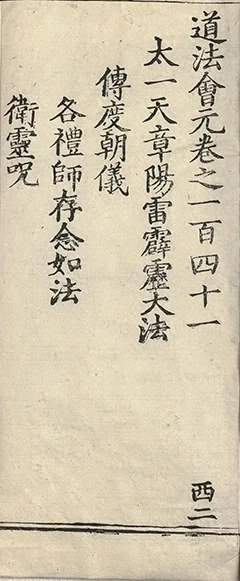 道法會元卷之一百四十一 西二
太一天章陽雷霹靂大法
傳度朝儀
各禮師存念如法
衛靈呪